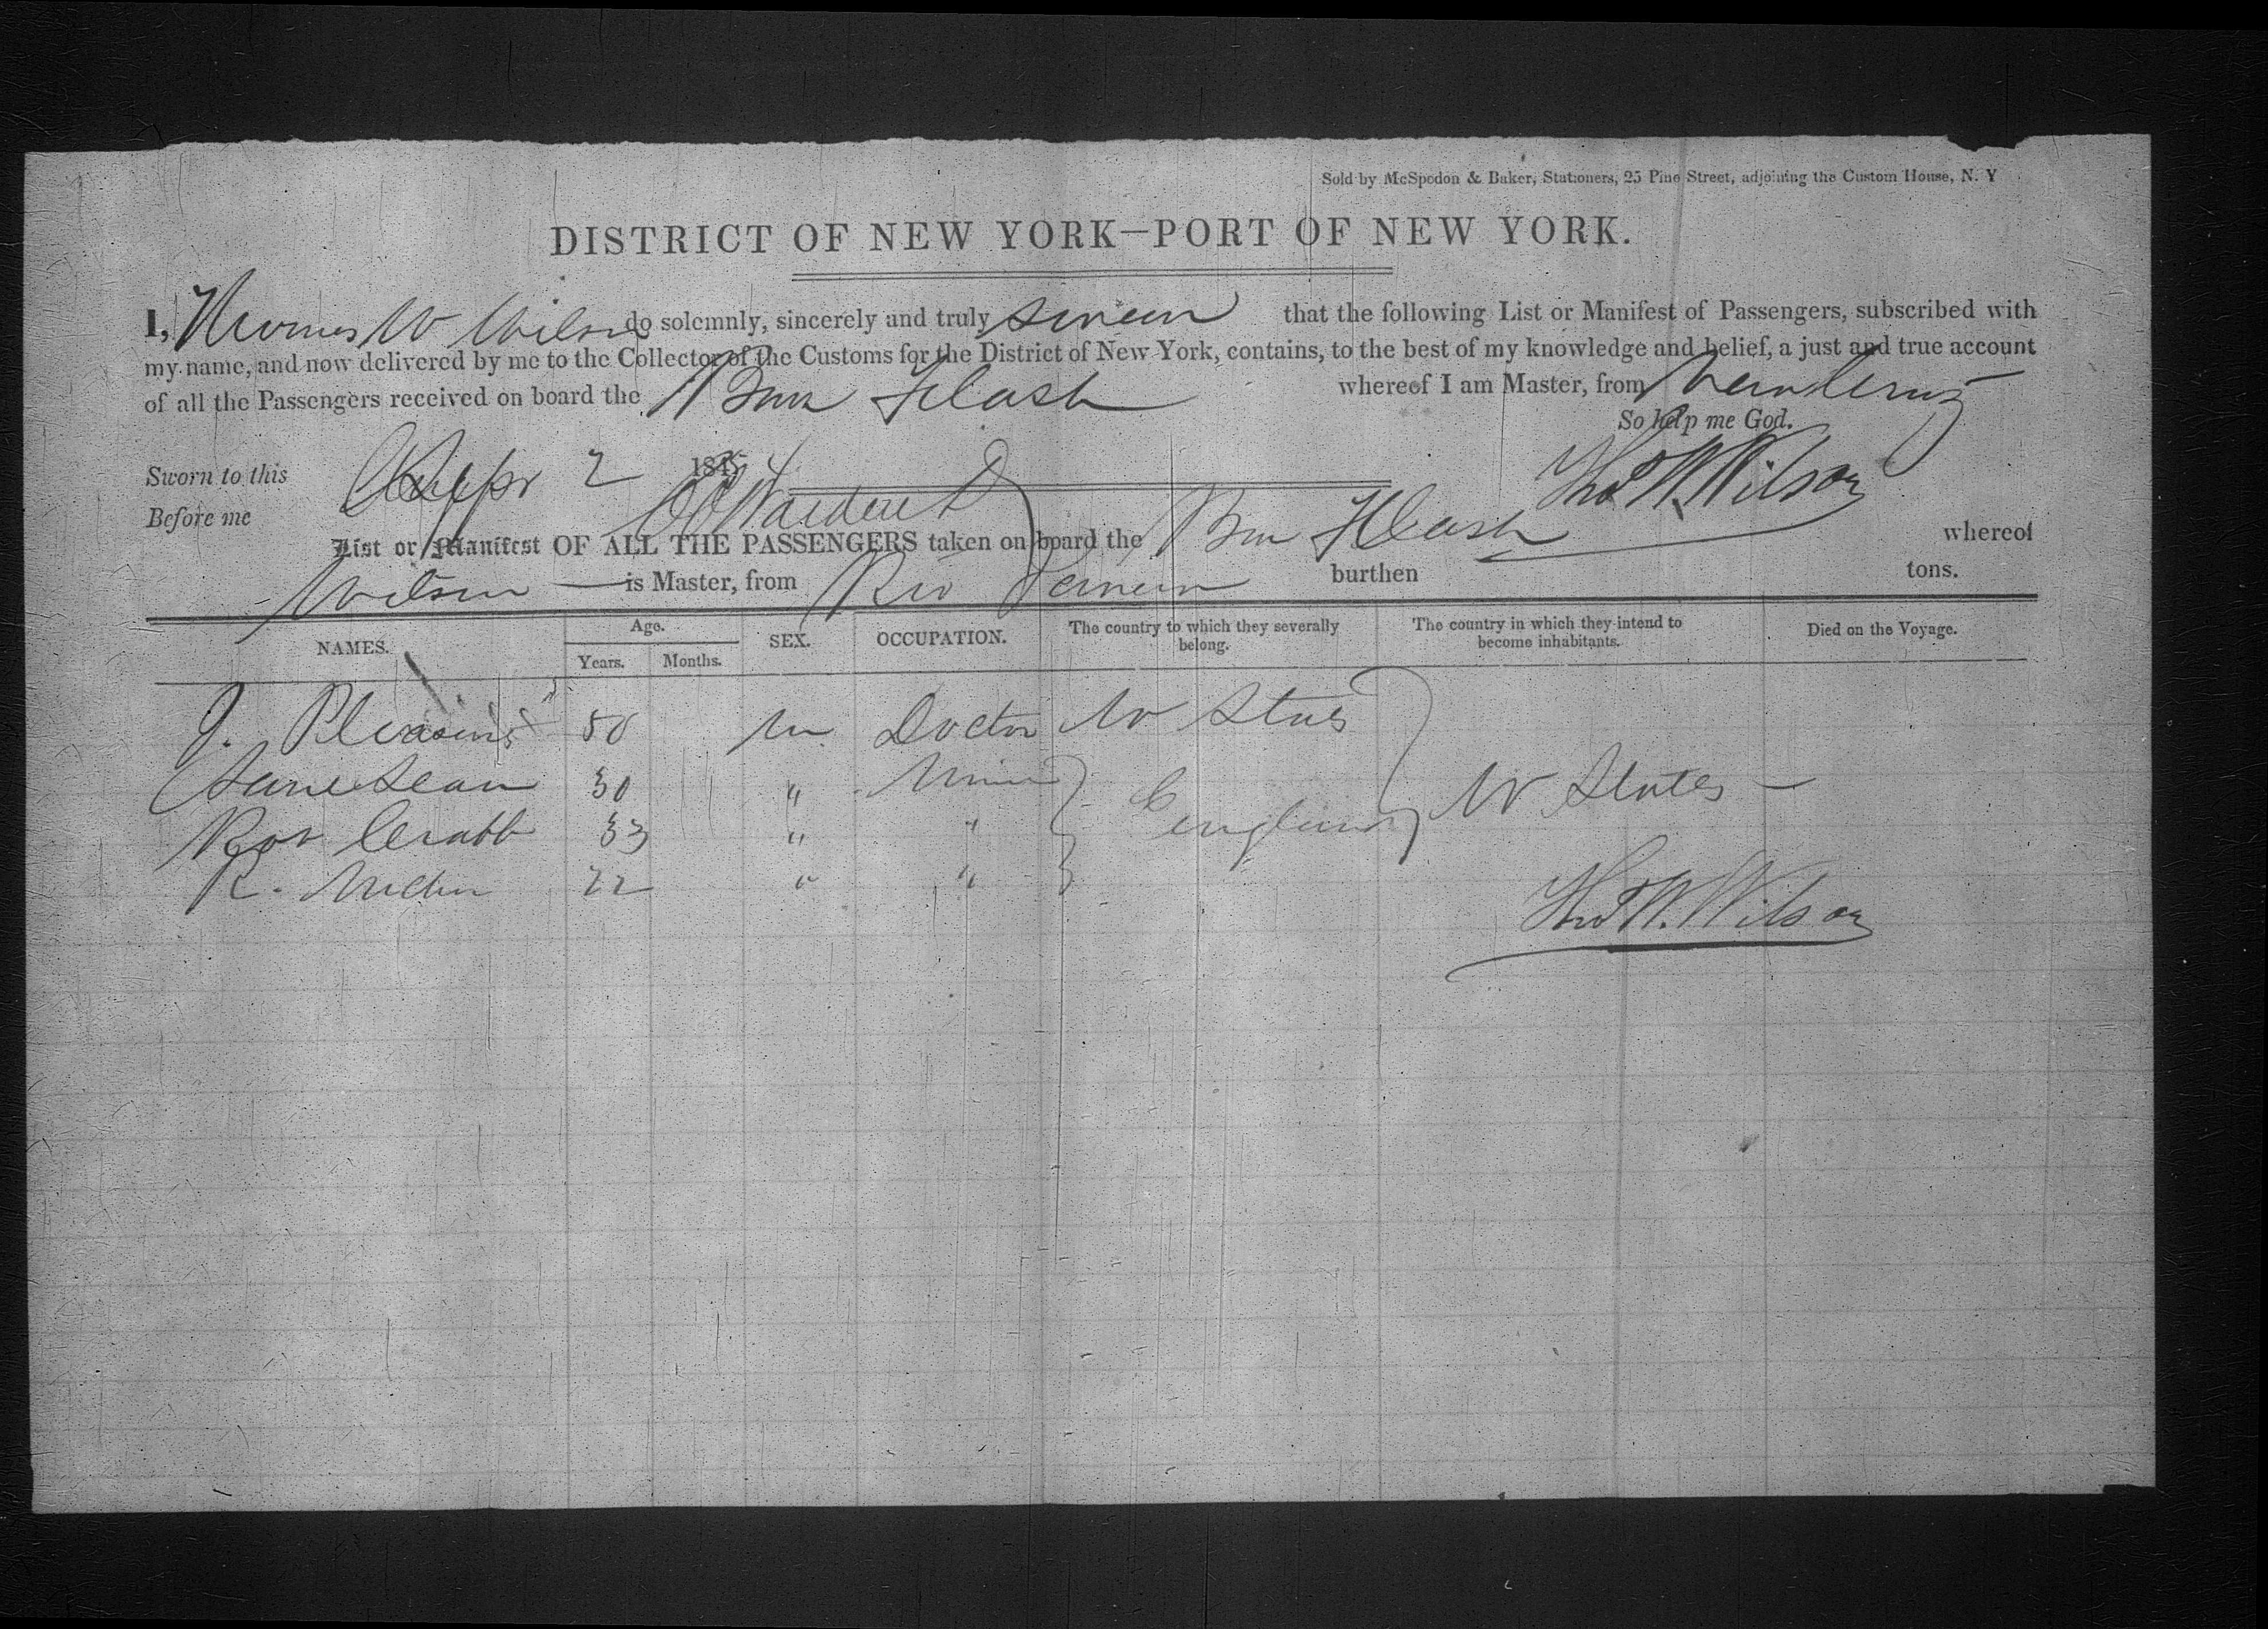 Sold by McSpedon & Baker, Stationers, 25 Pine Street, adjoining the Custom House, N. Y
DISTRICT OF NEW YORK—PORT OF NEW YORK.
I, Thomas W Wilson do solemnly, sincerely and truly swear that the following List or Manifest of Passengers, subscribed with
my name, and now delivered by me to the Collector of the Customs for the District of New York, contains, to the best of my knowledge and belief, a just and true account
of all the Passengers received on board the Flash whereof I am Master, from Vera Cruz
So help me God.
Sworn to this 2 184
Thos W. Wilson
Before me
List or Manifest OF ALL THE PASSENGERS taken on board the Flash whereof
Wilson is Master, from Rio burthen tons.
NAMES. Age. Years. Months. SEX. OCCUPATION. The country to which they severally belong. The country in which they intend to become inhabitants. Died on the Voyage.
J. 50 M Doctor U States
30 " Miner
England U States
Crabb 33 " "
R. 22 " "
Thos W. Wilson